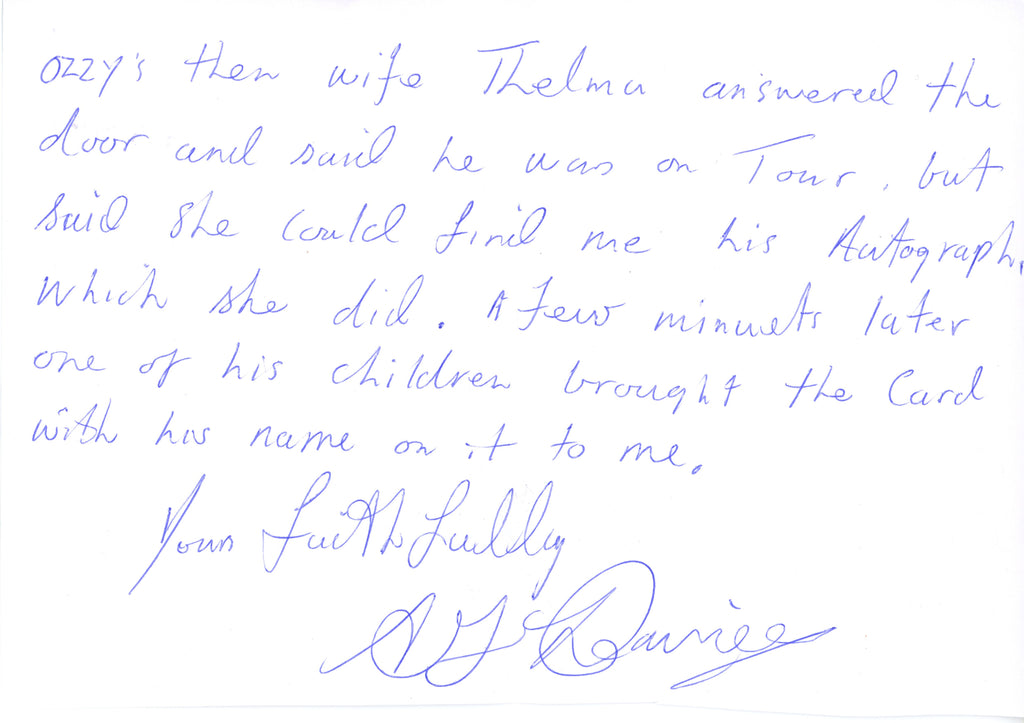 Ozzy's then wife Thelma answered the
door and said he was on Tour, but
said she could find me his Autograph.
Which she did. A few minuets later
one of his children brought the Card
with his name on it to me.
Yours faithfully
Davies